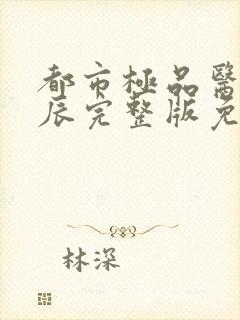 都市極品醫
辰完整版免
林深